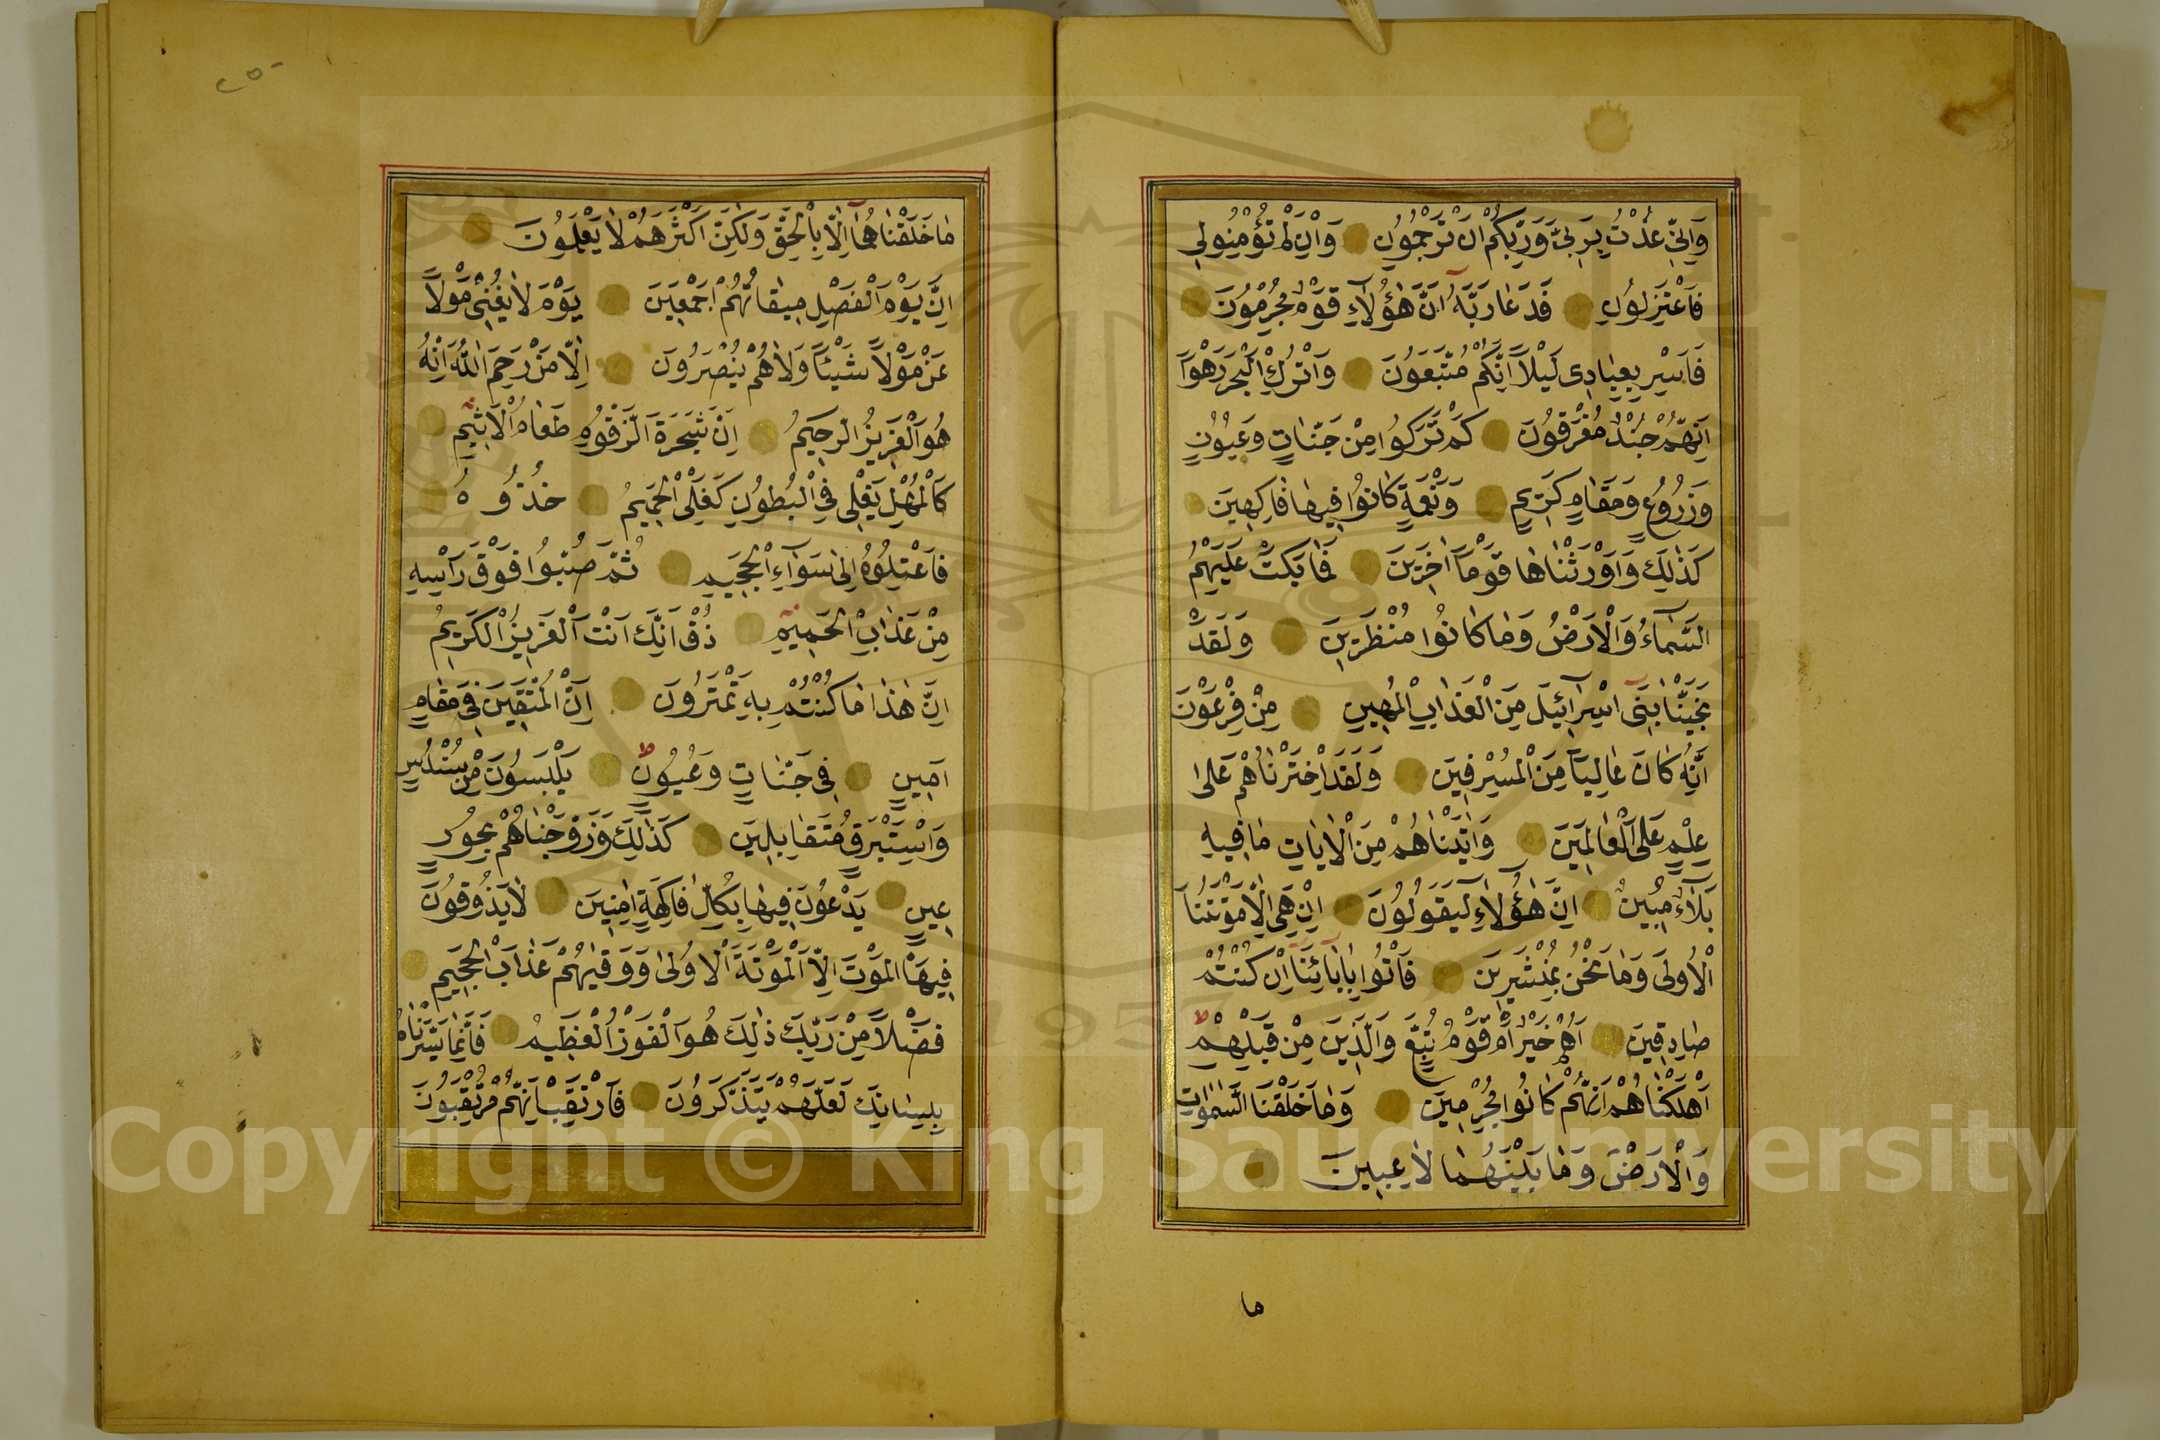 وَاِنِّي عُذْتُ بِرَبِّي وَرَبِّكُمْ اَنْ تَرْجُمُونِ وَاِنْ لَمْ تُؤْمِنُوا لِي
فَاعْتَزِلُونِ فَدَعَا رَبَّهُ اَنَّ هٰؤُلَاءِ قَوْمٌ مُجْرِمُونَ
فَاَسْرِ بِعِبَادِي لَيْلًا اِنَّكُمْ مُتَّبَعُونَ وَاتْرُكِ الْبَحْرَ رَهْوًا
اِنَّهُمْ جُنْدٌ مُغْرَقُونَ كَمْ تَرَكُوا مِنْ جَنَّاتٍ وَعُيُونٍ
وَزُرُوعٍ وَمَقَامٍ كَرِيمٍ وَنَعْمَةٍ كَانُوا فِيهَا فَاكِهِينَ
كَذٰلِكَ وَاَوْرَثْنَاهَا قَوْمًا اٰخَرِينَ فَمَا بَكَتْ عَلَيْهِمُ
السَّمَاءُ وَالْاَرْضُ وَمَا كَانُوا مُنْظَرِينَ وَلَقَدْ
نَجَّيْنَا بَنِي اِسْرَائِيلَ مِنَ الْعَذَابِ الْمُهِينِ مِنْ فِرْعَوْنَ
اِنَّهُ كَانَ عَالِيًا مِنَ الْمُسْرِفِينَ وَلَقَدِ اخْتَرْنَاهُمْ عَلٰى
عِلْمٍ عَلَى الْعَالَمِينَ وَاٰتَيْنَاهُمْ مِنَ الْاٰيَاتِ مَا فِيهِ
بَلَاءٌ مُبِينٌ اِنَّ هٰؤُلَاءِ لَيَقُولُونَ اِنْ هِيَ اِلَّا مَوْتَتُنَا
الْاُولٰى وَمَا نَحْنُ بِمُنْشَرِينَ فَاْتُوا بِاٰبَائِنَا اِنْ كُنْتُمْ
صَادِقِينَ اَهُمْ خَيْرٌ اَمْ قَوْمُ تُبَّعٍ وَالَّذِينَ مِنْ قَبْلِهِمْ ط
اَهْلَكْنَاهُمْ اِنَّهُمْ كَانُوا مُجْرِمِينَ وَمَا خَلَقْنَا السَّمٰوَاتِ
وَالْاَرْضَ وَمَا بَيْنَهُمَا لَاعِبِينَ
ما
٢٥٠
مَا خَلَقْنَاهُمَا اِلَّا بِالْحَقِّ وَلٰكِنَّ اَكْثَرَهُمْ لَا يَعْلَمُونَ
اِنَّ يَوْمَ الْفَصْلِ مِيقَاتُهُمْ اَجْمَعِينَ يَوْمَ لَا يُغْنِي مَوْلًى
عَنْ مَوْلًا شَيْئًا وَلَا هُمْ يُنْصَرُونَ اِلَّا مَنْ رَحِمَ اللّٰهُ اِنَّهُ
هُوَ الْعَزِيزُ الرَّحِيمُ اِنَّ شَجَرَةَ الزَّقُّومِ طَعَامُ الْاَثِيمِ
كَالْمُهْلِ يَغْلِي فِي الْبُطُونِ كَغَلْيِ الْحَمِيمِ خُذُوهُ
فَاعْتِلُوهُ اِلٰى سَوَاءِ الْجَحِيمِ ثُمَّ صُبُّوا فَوْقَ رَاْسِهِ
مِنْ عَذَابِ الْحَمِيمِ ذُقْ اِنَّكَ اَنْتَ الْعَزِيزُ الْكَرِيمُ
اِنَّ هٰذَا مَا كُنْتُمْ بِهِ تَمْتَرُونَ اِنَّ الْمُتَّقِينَ فِي مَقَامٍ
اَمِينٍ فِي جَنَّاتٍ وَعُيُونٍ ط يَلْبَسُونَ مِنْ سُنْدُسٍ
وَاِسْتَبْرَقٍ مُتَقَابِلِينَ كَذٰلِكَ وَزَوَّجْنَاهُمْ بِحُورٍ
عِينٍ يَدْعُونَ فِيهَا بِكُلِّ فَاكِهَةٍ اٰمِنِينَ لَا يَذُوقُونَ
فِيهَا الْمَوْتَ اِلَّا الْمَوْتَةَ الْاُولٰى وَوَقٰيهُمْ عَذَابَ الْجَحِيمِ
فَضْلًا مِنْ رَبِّكَ ذٰلِكَ هُوَ الْفَوْزُ الْعَظِيمُ فَاِنَّمَا يَسَّرْنَاهُ
بِلِسَانِكَ لَعَلَّهُمْ يَتَذَكَّرُونَ فَارْتَقِبْ اِنَّهُمْ مُرْتَقِبُونَ
1957
Copyright © King Saud University